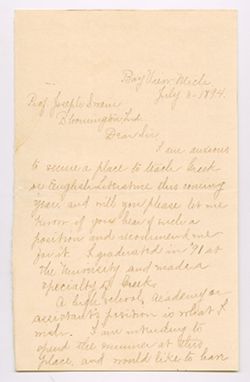 Bay View, Mich.
July 3 - 1894.
Prof. Joseph Swain
Bloomington Ind.
Dear Sir,
I am anxious
to secure a place to teach Greek
or English Literature this coming
year, and will you please let me
know if you hear of such a
position and recommend me
for it. I graduated in '91 at
the University and made a
specialty of Greek.
A high school, academy or
assistant's position is what I
wish. I am intending to
spend the summer at this
place, and would like to hear